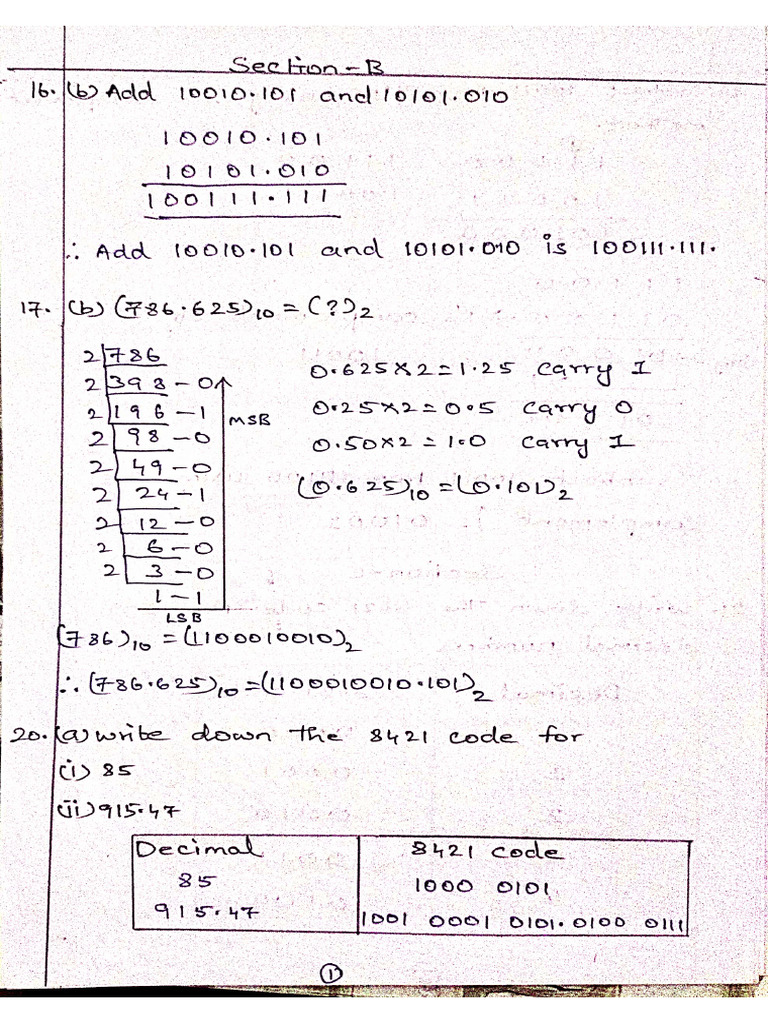 Section-B
16. (b) Add 10010.101 and 10101.010
10010.101
10101.010
100111.111
∴ Add 10010.101 and 10101.010 is 100111.111.
17. (b) (786.625)₁₀ = (?)₂
2 786
2 398 - 0
2 196 - 1 MSB
2 98 - 0
2 49 - 0
2 24 - 1
2 12 - 0
2 6 - 0
2 3 - 0
1 - 1
LSB
0.625×2=1.25 carry 1
0.25×2=0.5 carry 0
0.50×2=1.0 carry 1
(0.625)₁₀=(0.101)₂
(786)₁₀=(1100010010)₂
∴ (786.625)₁₀=(1100010010.101)₂
20. (a) write down the 8421 code for
(i) 85
(ii) 915.47
Decimal 8421 code
85 1000 0101
915.47 1001 0001 0101.0100 0111
1